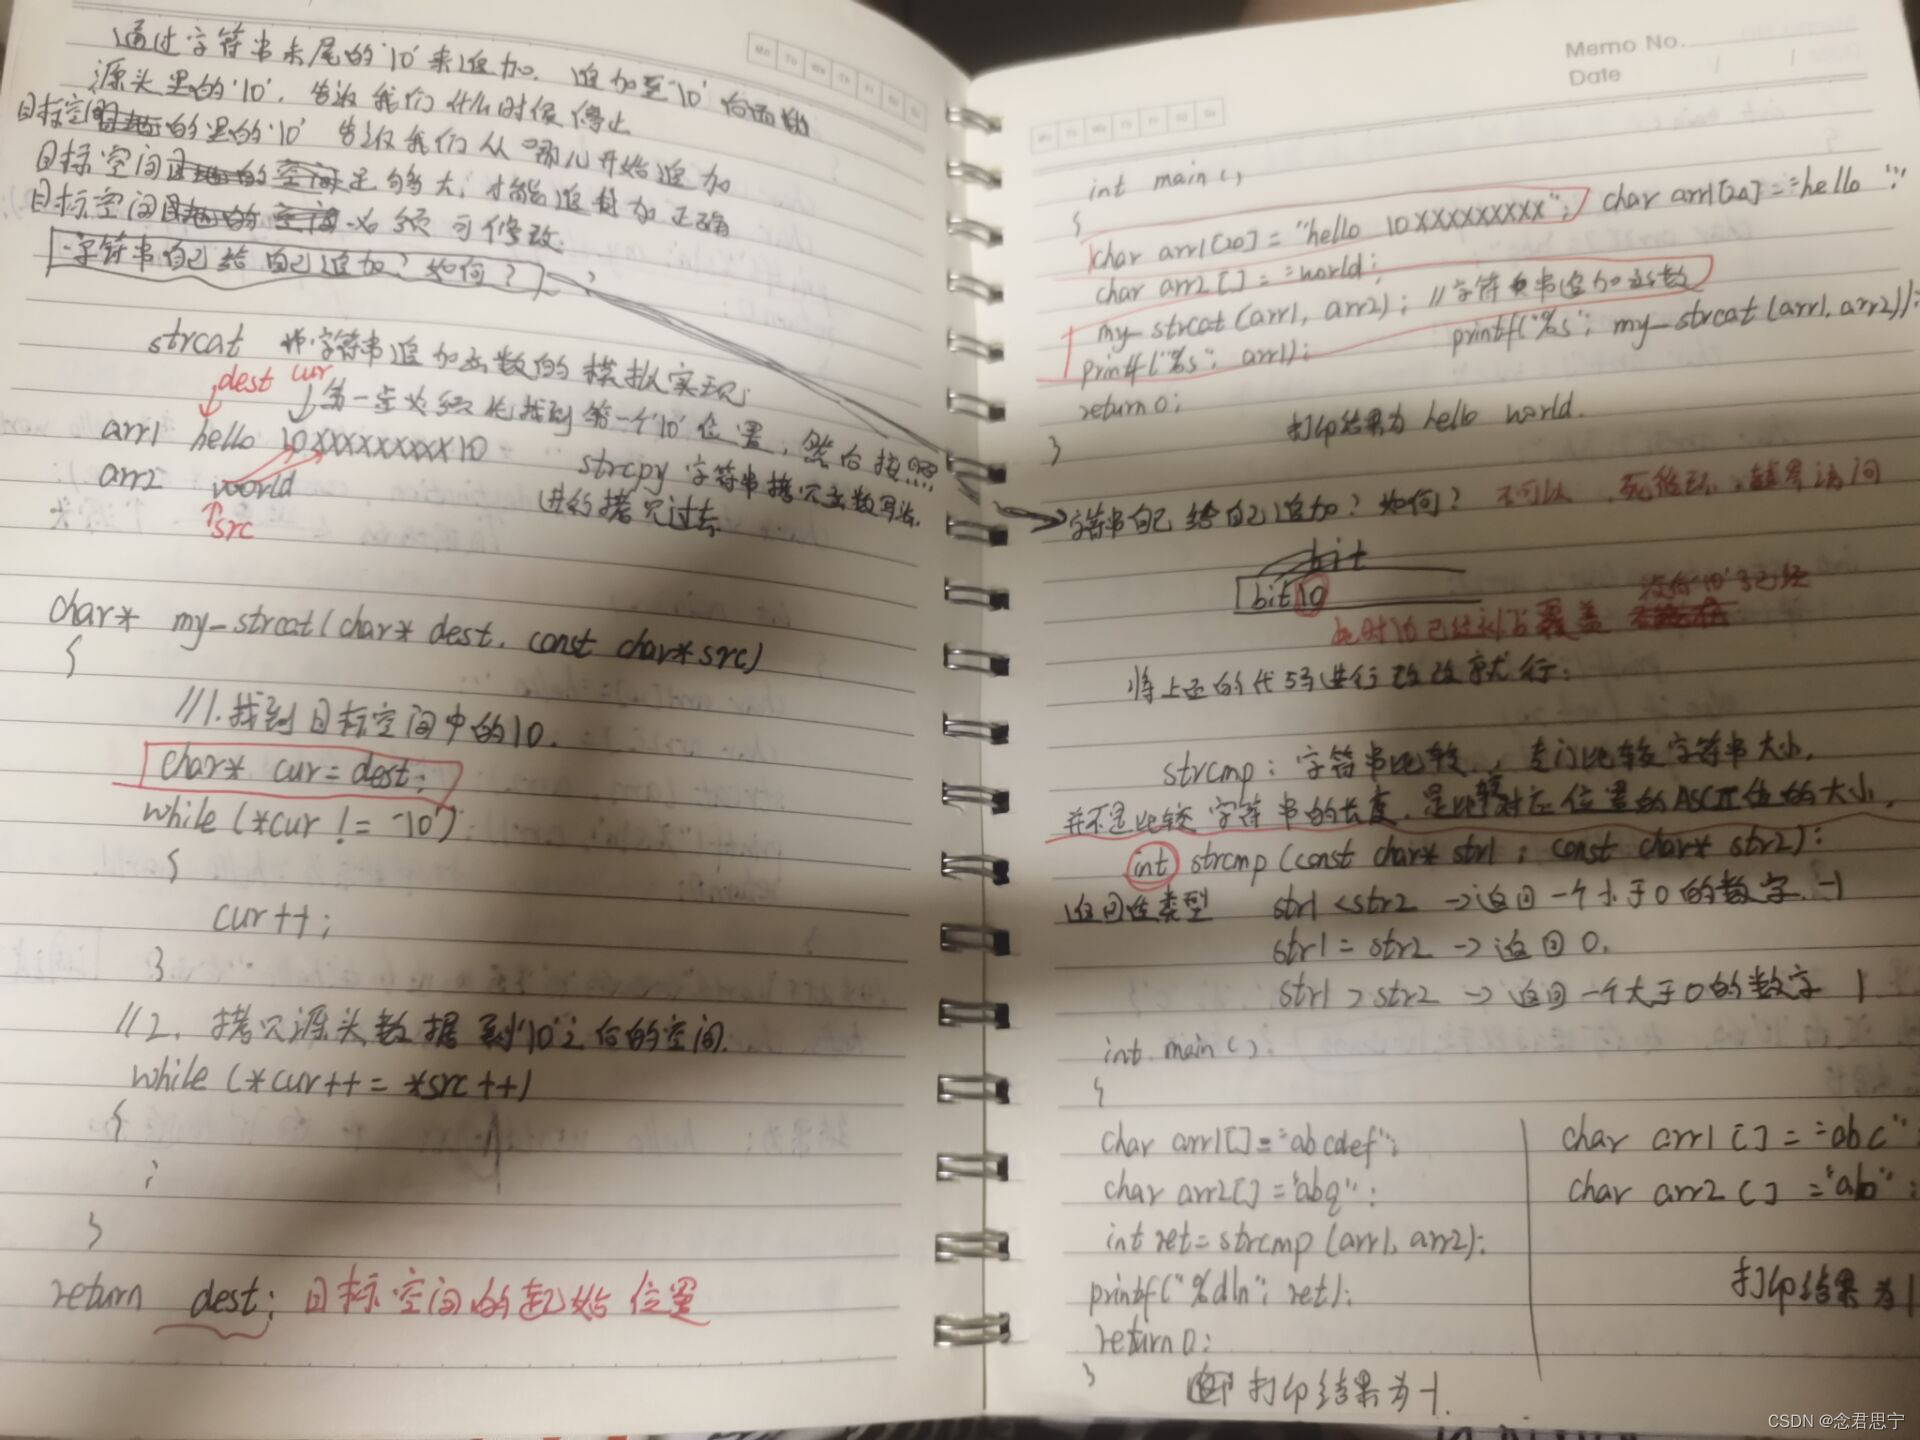 通过字符串末尾的'\0'来追加. 追加至'\0'
源头里的'\0'. 告诉我们什么时候停止
目标空间的里的'\0' 告诉我们从哪儿开始追加
目标空间足够大; 才能追加正确
目标空间必须可修改.
字符串自己给自己追加? 如何?
strcat 字符串追加函数的模拟实现:
dest cur
第一步必须先找到第一个'\0'位置, 然后按照
arr1 hello \0XXXXXXXXX\0 strcpy 字符串拷贝函数写法.
arr2 world 进行拷贝过去
src
char* my_strcat(char* dest, const char* src)
{
//1.找到目标空间中的\0.
char* cur = dest;
while (*cur != '\0')
{
cur++;
}
//2. 拷贝源头数据到'\0'之后的空间.
while (*cur++ = *src++)
{
;
}
return dest; 目标空间的起始位置
Memo No.
Date
int main()
{
char arr1[20] = "hello \0XXXXXXXXX"; char arr1[20] = "hello ";
char arr2[] = "world;
my_strcat(arr1, arr2); //字符串追加函数
printf("%s", arr1); printf("%s", my_strcat(arr1, arr2));
return 0;
打印结果为 hello world.
}
字符串自己给自己追加? 如何? 不可以, 死循环, 越界访问
bit
bit\0
此时\0已经被b覆盖
将上面的代码进行改改就行:
strcmp: 字符串比较, 专门比较字符串大小,
并不是比较字符串的长度, 是比较对应位置的ASCII值的大小.
int strcmp(const char* str1, const char* str2);
返回值类型 str1 < str2 -> 返回一个小于0的数字. -1
str1 = str2 -> 返回0.
str1 > str2 -> 返回一个大于0的数字 1
int main()
{
char arr1[] = "abcdef"; char arr1[] = "abc";
char arr2[] = "abq"; char arr2[] = "ab";
int ret = strcmp(arr1, arr2);
printf("%d\n", ret); 打印结果为1
return 0;
}
打印结果为-1.
CSDN @念君思宁